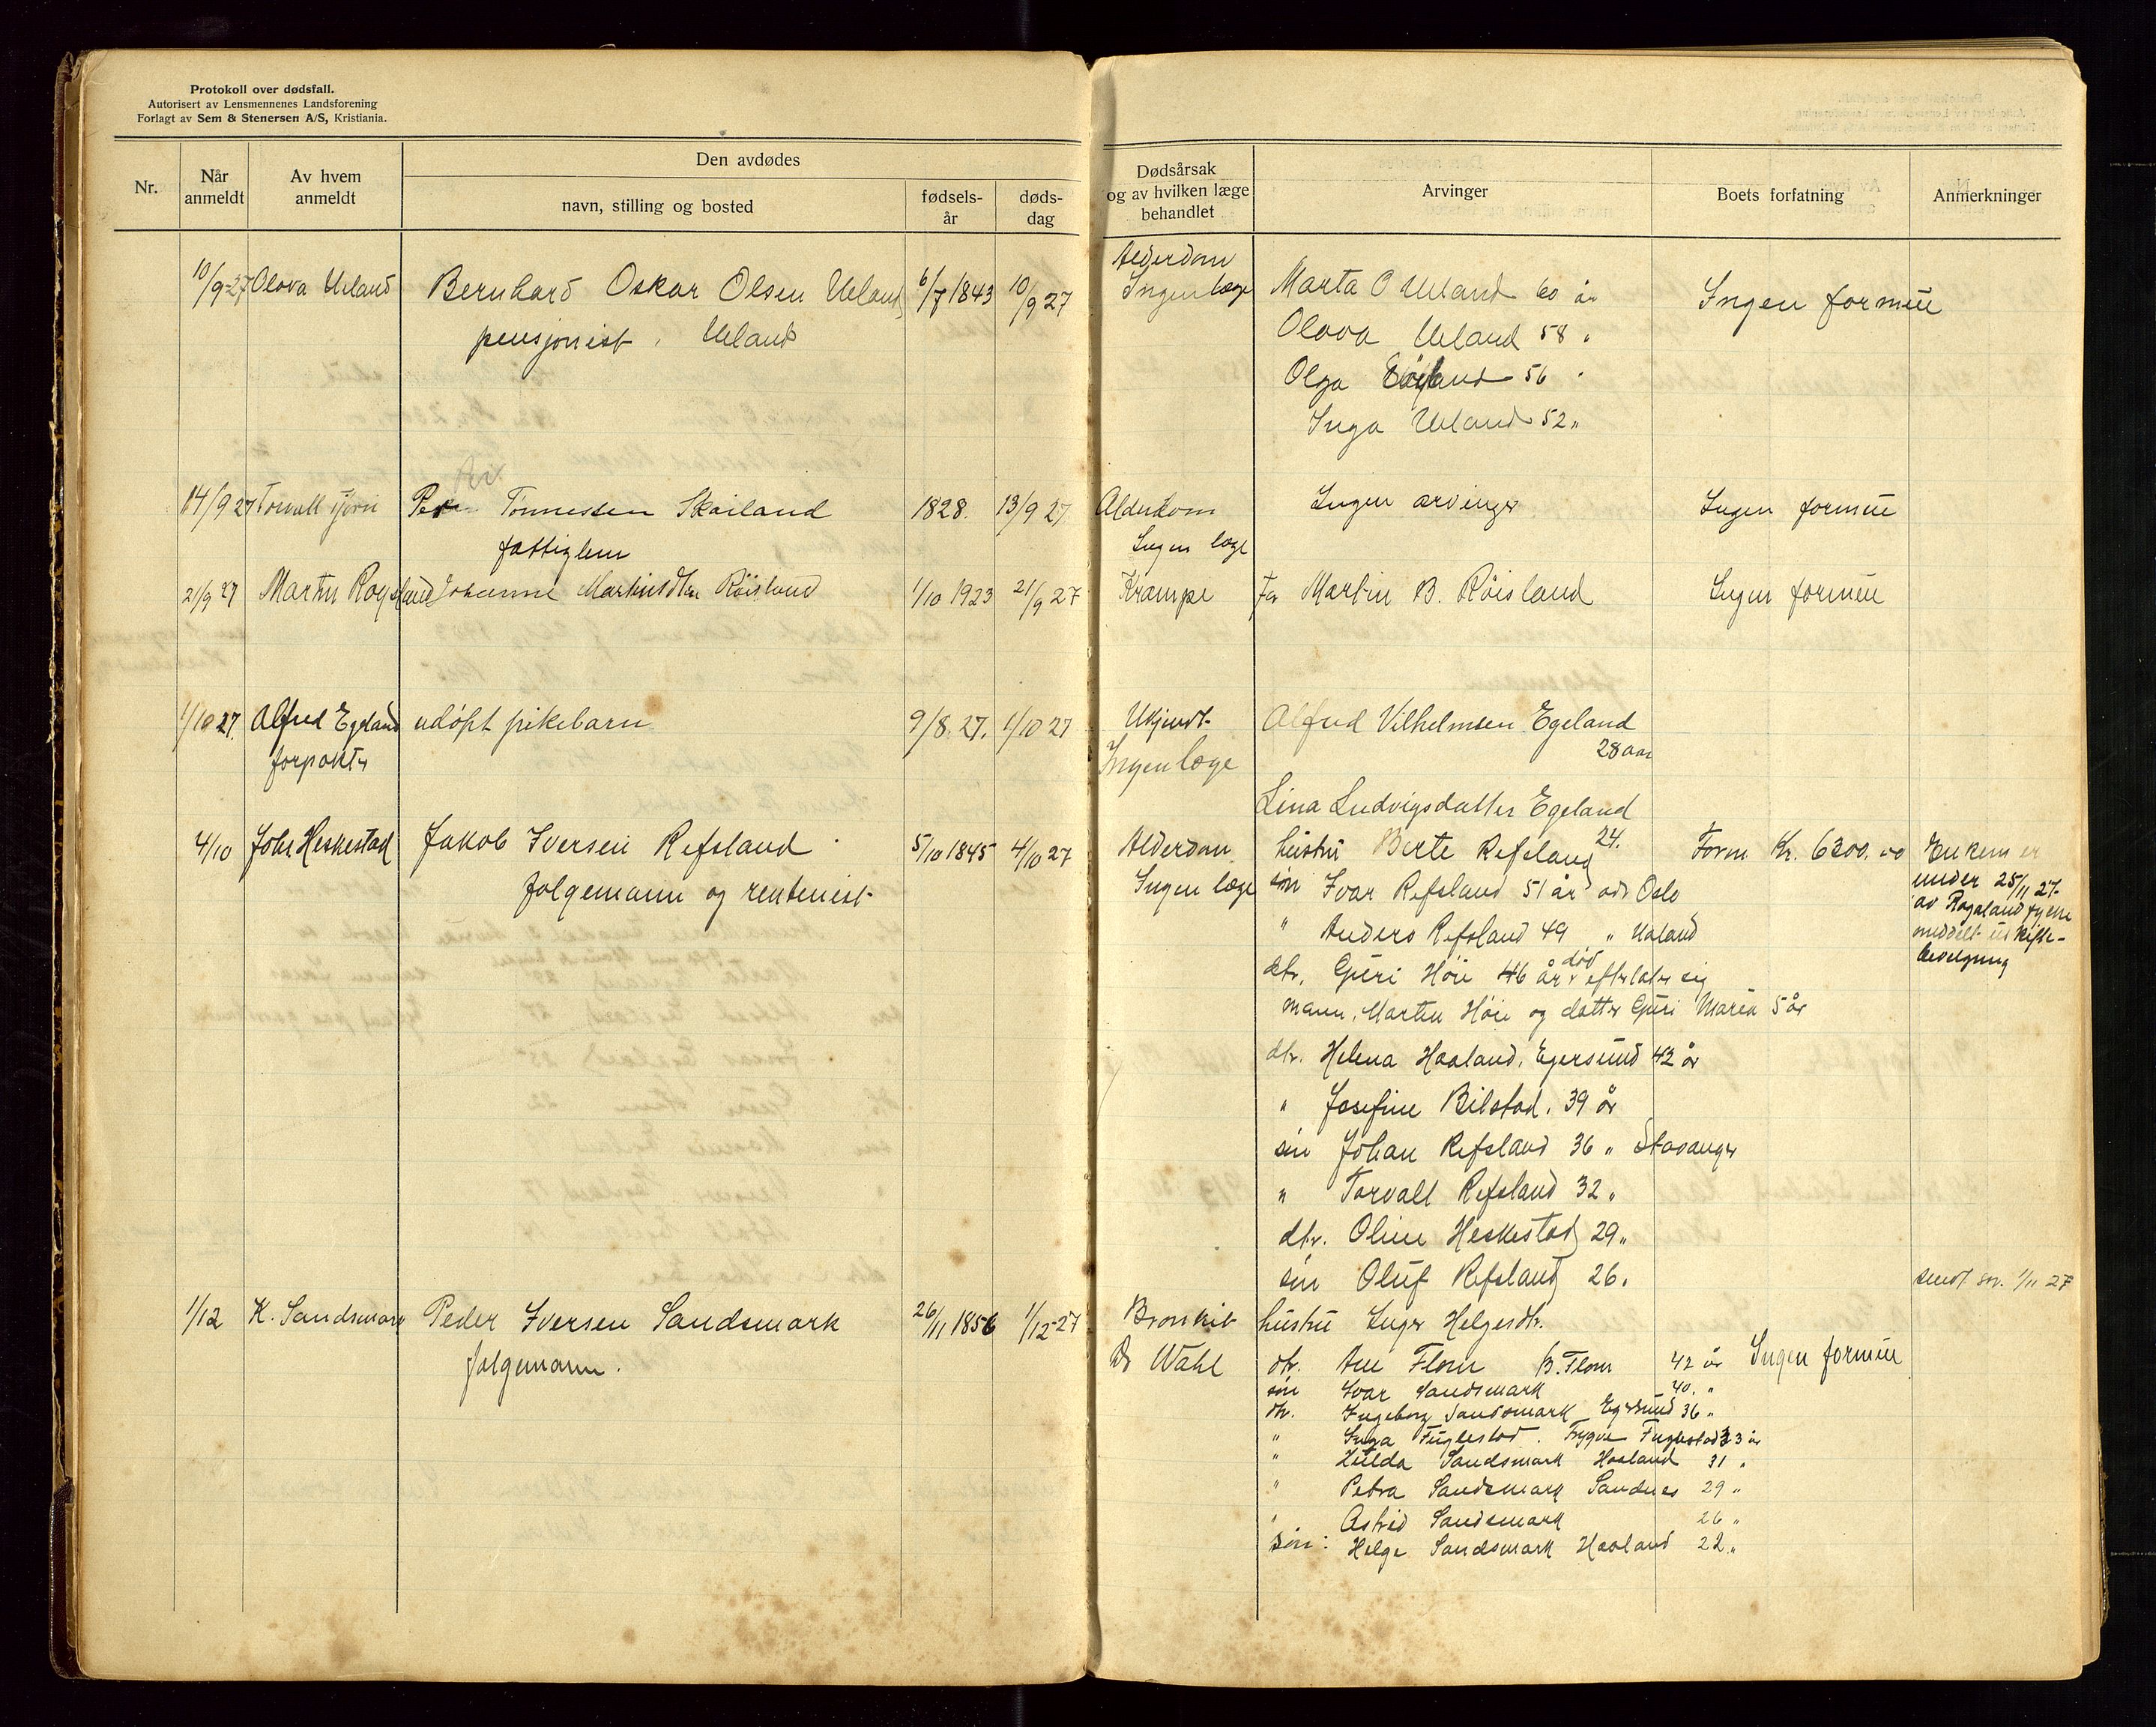 Protokoll over dødsfall.
Autorisert av Lensmennenes Landsforening
Forlagt av Sem & Stenersen A/S, Kristiania.
Nr.
Når anmeldt
Av hvem anmeldt
Den avdødes
navn, stilling og bosted
fødsels-år
døds-dag
Dødsårsak og av hvilken læge behandlet
Arvinger
Boets forfatning
Anmerkninger
10/9-27 Olova Ueland Bernhard Oskar Olsen Ueland 6/7 1843 10/9 27
pensjonist, Ueland
Alderdom
Ingen læge
Marta O Ueland 60 år
Olova Ueland 58 "
Olga 56 "
Inga Ueland 52 "
Ingen formue
14/9 27 Tønnessen Skailand 1828. 13/9 27
fattiglem
Alderdom
Ingen læge
Ingen arvinger
Ingen formue
21/9 27 Martin Røysland Johanne Martinsdtr Röisland 1/10 1923 21/9 27
Krampe
Far Martin B. Röisland
Ingen formue
1/10 27. Alfred Egeland udöpt pikebarn 9/8 27. 1/10 27
forpakter
Ukjendt
Ingen læge
Alfred Vilhelmsen Egeland
28 aar
Lina Ludvigsdatter Egeland
24.
4/10 Johs. Heskestad Jakob Iversen Refsland 5/10 1845 4/10 27
folgemann og rentenist
Alderdom
Ingen læge
hustru Berte Refsland
Form. Kr. 6300.00
Enken er
under 25/11 27
av Rogaland fylke
meddelt uskifte-
bevilgning
sön Ivar Refsland 51 år adr Oslo
" Anders Refsland 49 " Ualand
dtr. Guri Höie 46 år død efterlater sig
mann, Martin Höie og datter Guri Maria 5 år
dtr. Helena Haaland, Egersund 42 år
" Josefine Bilstad. 39 år
sön Johan Refsland 36 " Stavanger
" Torvall Refsland 32 "
dtr. Oline Heskestad 29 "
sön Oluf Refsland 26.
sendt 1/11 27
1/12 K. Sandsmark Peder Iversen Sandsmark 26/11 1856 1/12-27
folgemann.
Bronkit
Dr Wahl
hustru Inger Helgesdtr.
dtr. Ane Flom B. Flom 42 år
Ingen formue
sön Ivar Sandsmark 40. "
dtr. Ingeborg Sandsmark Egersund 36 "
" Inga Fuglestad. Trygve Fuglestad 33 år
" Hulda Sandsmark Haaland 31 "
" Petra Sandsmark Sandnes 29 "
" Astrid Sandsmark 26 "
sön: Helge Sandsmark Haaland 22 "